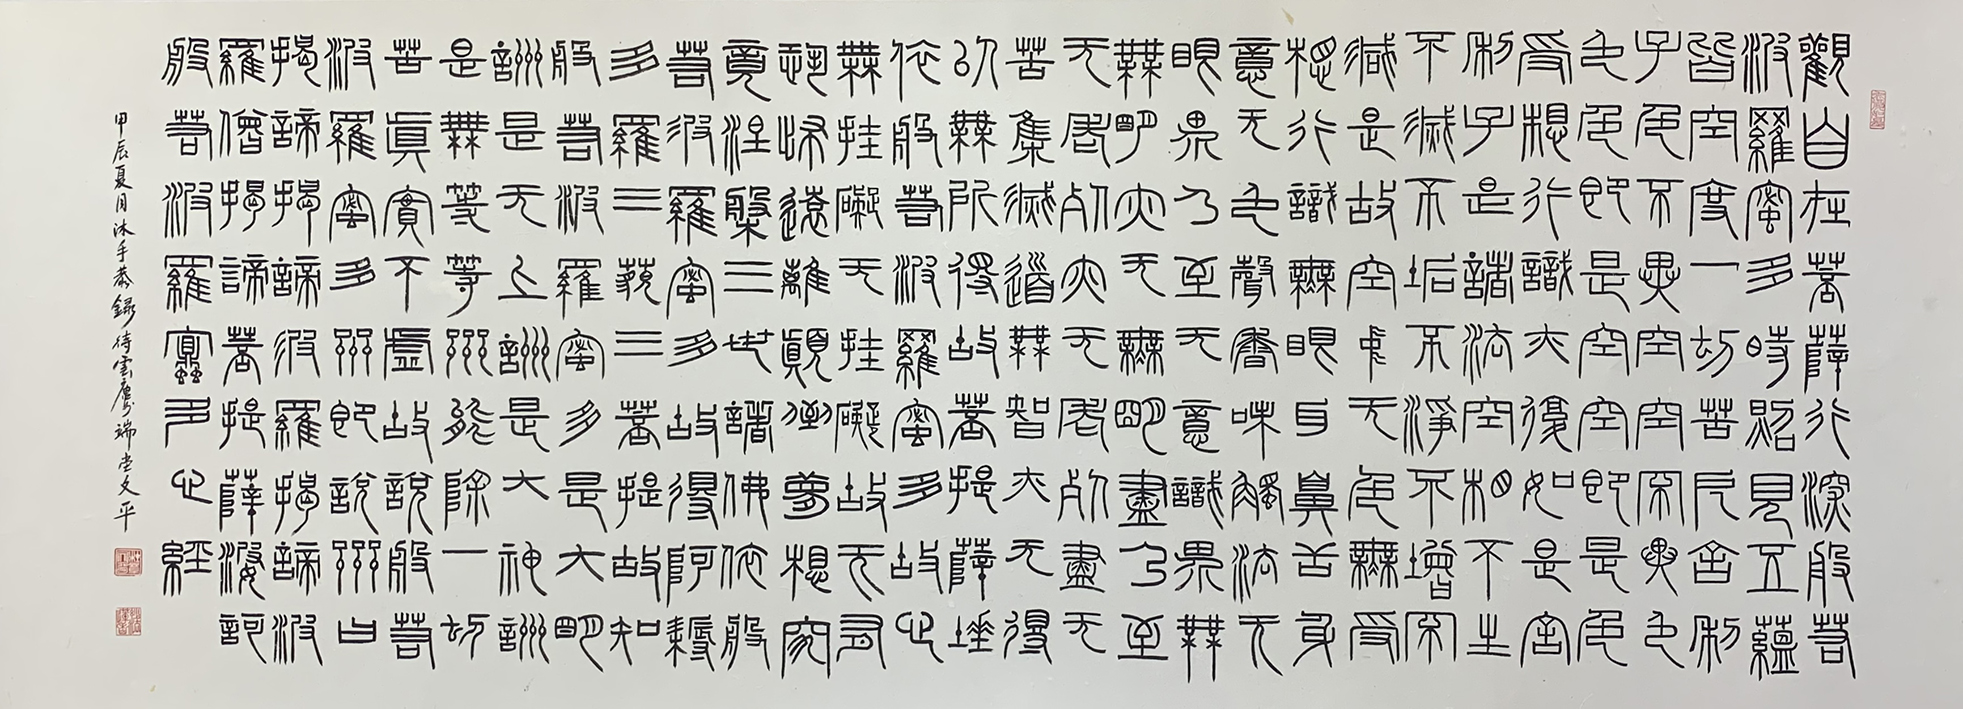 觀自在菩薩行深般若
波羅蜜多時照見五蘊
皆空度一切苦厄舍利
子色不異空空不異色
色色即是空空即是色
受想行識亦復如是舍
利子是諸法空相不生
不滅不垢不淨不增不
減是故空中无色無受
想行識無眼耳鼻舌身
意无色聲香味觸法无
眼界乃至无意識界無
無明亦无無明盡乃至
无老死亦无老死盡无
苦集滅道無智亦无得
以無所得故菩提薩埵
依般若波羅蜜多故心
無挂礙无挂礙故无有
恐怖遠離顛倒夢想究
竟涅槃三世諸佛依般
若波羅蜜多故得阿耨
多羅三藐三菩提故知
般若波羅蜜多是大明
詶是无上詶是大神詶
是無等等州能除一切
苦真實不虛故說般若
波羅蜜多州即說州曰
揭諦揭諦波羅揭諦波
羅僧揭諦菩提薩婆訶
般若波羅蜜多心經
甲辰夏月沐手恭錄待雲廬瑞堂文平